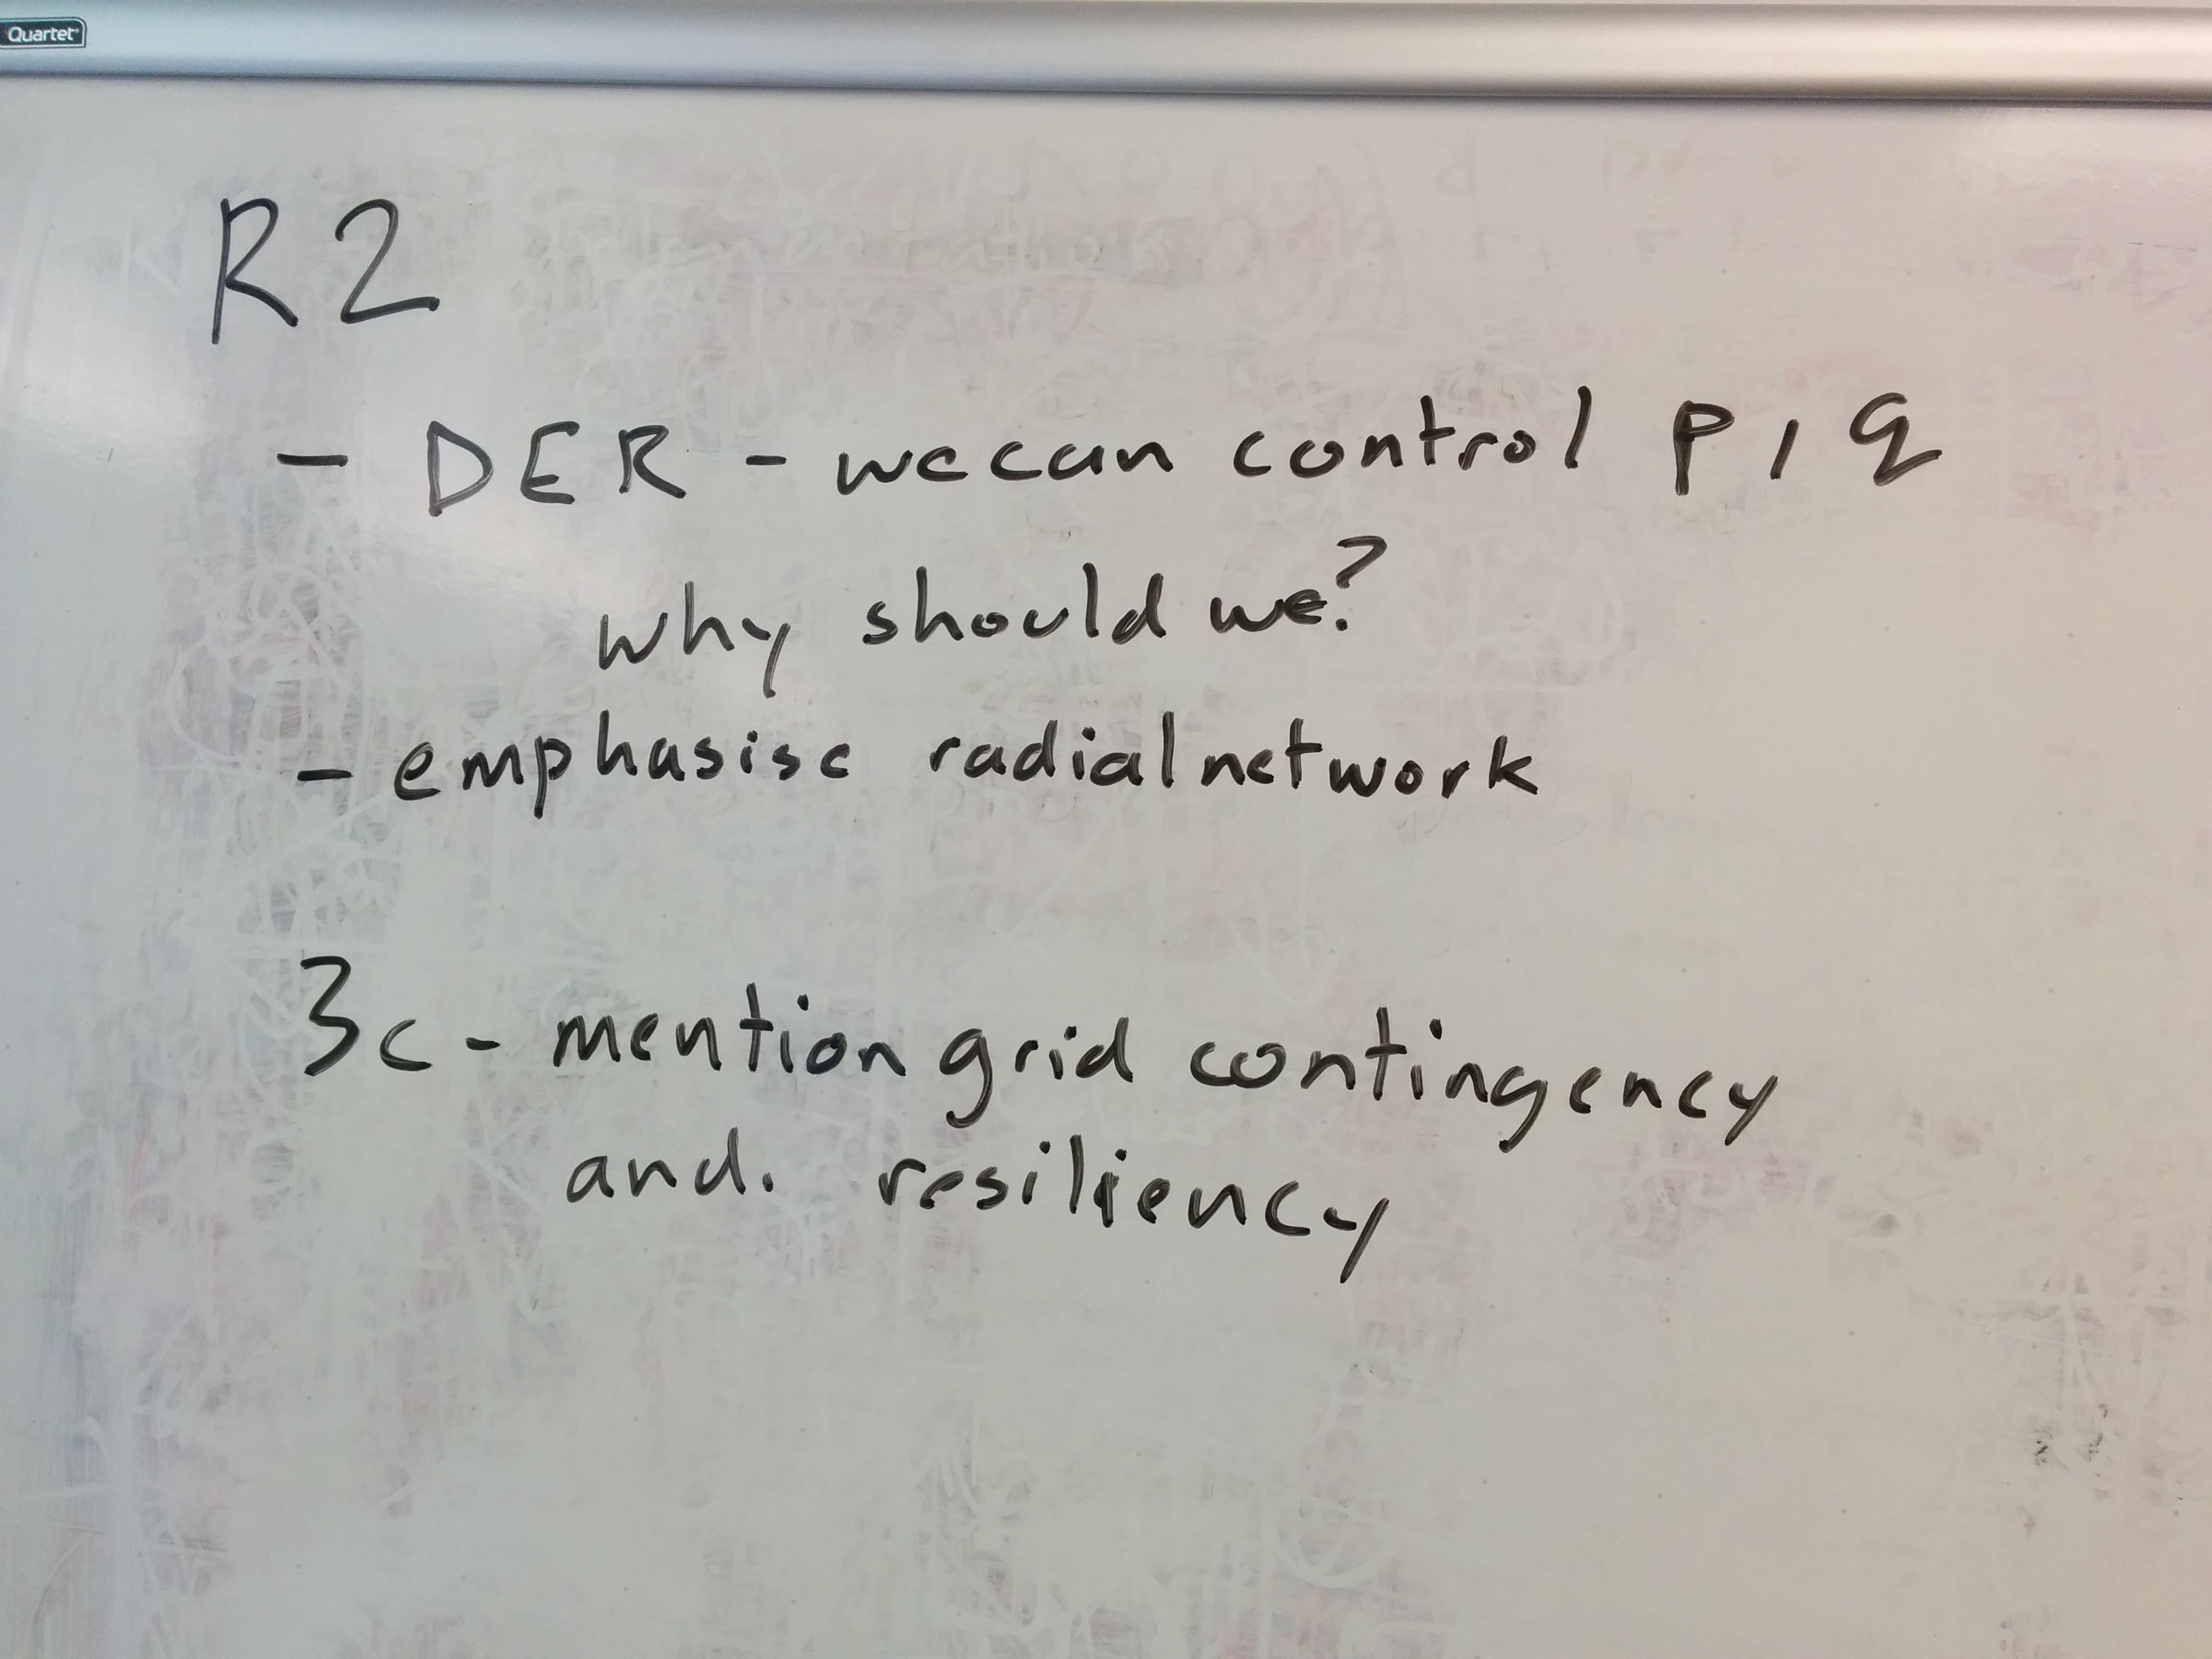 Quartet
R2
- DER - we can control p, q
why should we?
- emphasise radial network
3c - mention grid contingency
and. resiliency